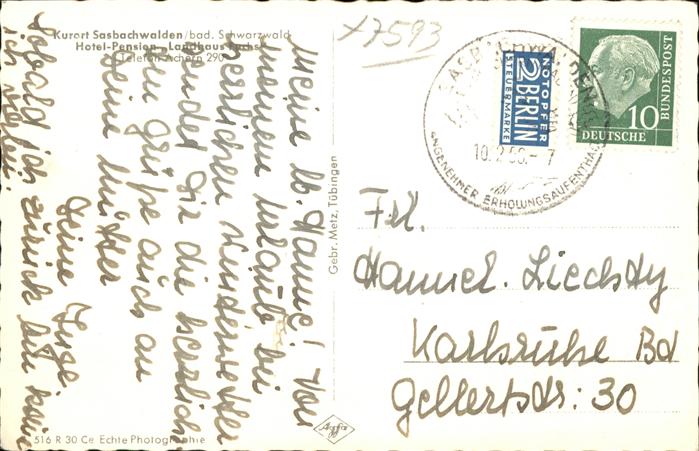 Kurort Sasbachwalden /bad. Schwarzwald
Hotel-Pension "Landhaus Fuchs"
Telefon Achern 290
x7593
Meine lb. Hanne! Von
meinem Urlaub bei
herrlichem Kinderwetter
sendet Dir die herzlich-
sten Grüße auch an
Deine Mutter
Deine Inge
Sobald ich zurück bin komme
ich
Gebr. Metz, Tübingen
516 R 30 Ce Echte Photographie
Agfa
SASBACHWALDEN
10.2.56.-7
ANGENEHMER ERHOLUNGSAUFENTHALT
NOTOPFER
2 BERLIN
STEUERMARKE
DEUTSCHE
BUNDESPOST
10
Frl.
Hannel. Liechdy
Karlsruhe Bd
Gellertstr: 30